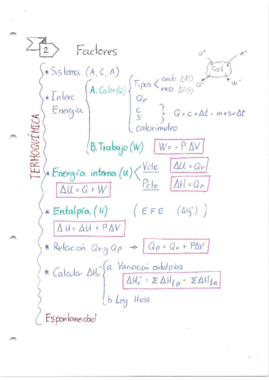 2 Factores
TERMOQUÍMICA
* Sistema (A, C, A)
Sist
Q+ W+
Q- W-
* Interc Energía
A. Calor (Q)
Tipos
endo ΔH⊕
exo ΔH⊖
Qp
C
S
Q = c • Δt = m • s • Δt
calorímetro
B. Trabajo (W) W = - P ΔV
* Energía interna (U)
V cte ΔU = Qv
P cte ΔH = Qp
ΔU = Q + W
* Entalpía (H) (EFE (ΔHf°))
ΔH = ΔU + PΔV
* Relación Qv y Qp → Qp = Qv + PΔV
* Calcular ΔHr°
a. Variación entalpías
ΔHr° = Σ ΔHfp - Σ ΔHfR
b. Ley Hess
Espontaneidad